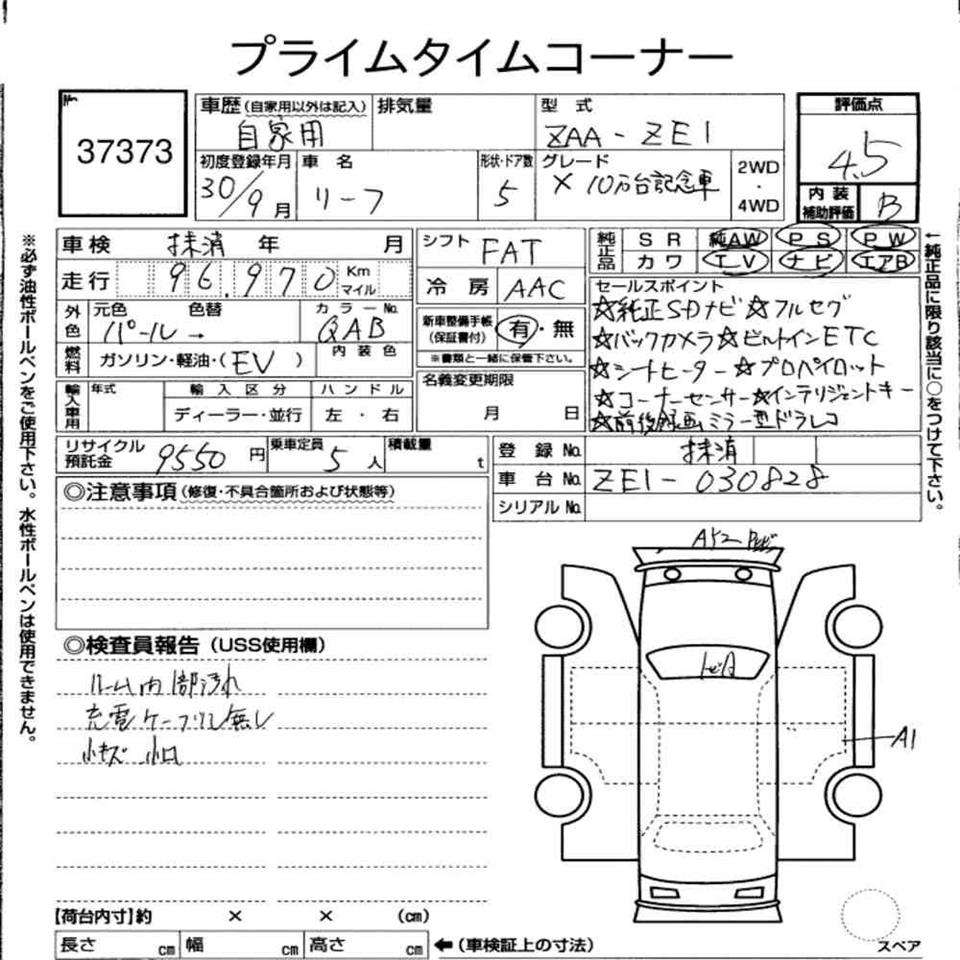 プライムタイムコーナー
No.
37373
車歴(自家用以外は記入)
自家用
排気量
型 式
ZAA-ZE1
評価点
4.5
初度登録年月
30/9月
車 名
リーフ
形状・ドア数
5
グレード
X 10万台記念車
2WD
・
4WD
内装
補助評価
B
車検 抹消 年 月
走行 96.970 Km
マイル
シフト FAT
冷 房 AAC
純正品
SR 純AW PS PW
カワ TV ナビ エアB
外色
元色 色替
パール→
カラーNo.
QAB
燃料
ガソリン・軽油・(EV )
内装色
新車整備手帳
(保証書付)
有・無
※書類と一緒に保管下さい。
セールスポイント
☆純正SDナビ☆フルセグ
☆バックカメラ☆ビルトインETC
☆シートヒーター☆プロパイロット
☆コーナーセンサー☆インテリジェントキー
☆前後録画ミラー型ドラレコ
輸入車用
年式
輸入区分
ディーラー・並行
ハンドル
左・右
名義変更期限
月 日
リサイクル
預託金
9550円
乗車定員
5人
積載量
t
登録No. 抹消
車台No. ZE1-030828
シリアルNo.
◎注意事項(修復・不具合箇所および状態等)
◎検査員報告(USS使用欄)
ルーム内部汚れ
充電ケーブル無し
小キズ 小凹
A1
【荷台内寸】約 × × (cm)
長さ cm 幅 cm 高さ cm
←(車検証上の寸法)
スペア
※必ず油性ボールペンをご使用下さい。水性ボールペンは使用できません。
←純正品に限り該当に○をつけて下さい。